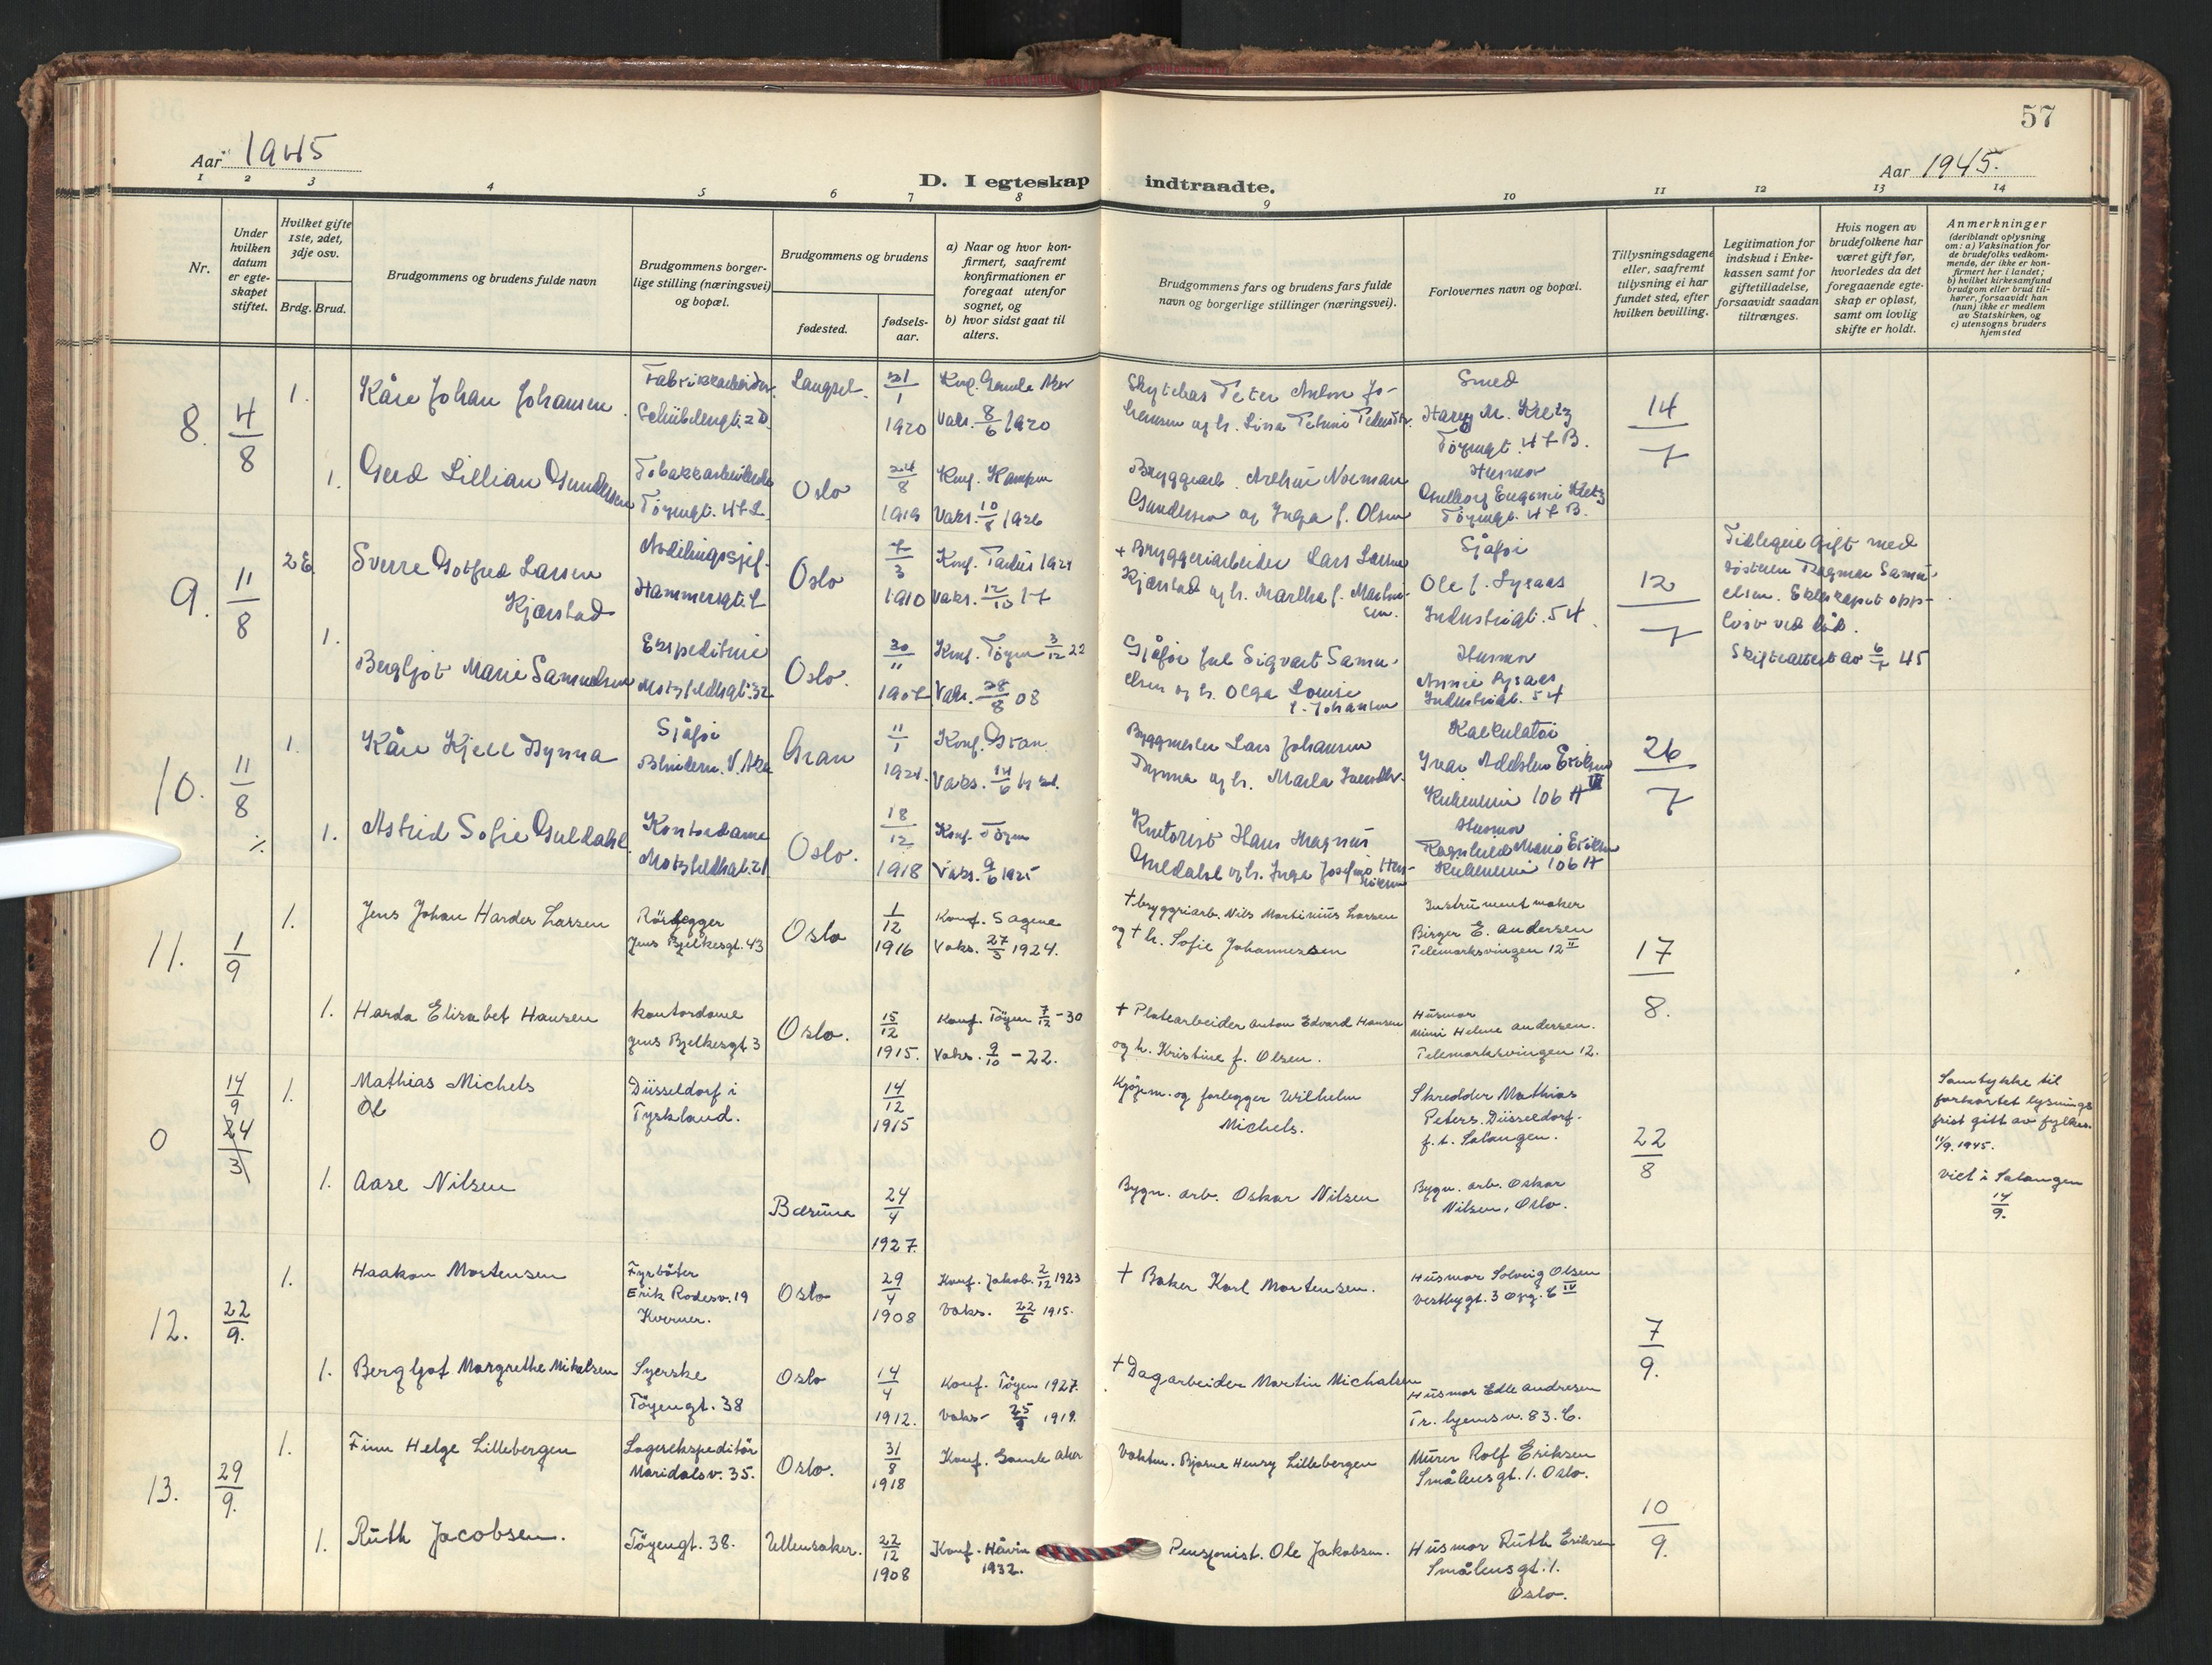 57
Aar 1945
Aar 1945.
D. I egteskap indtraadte.
1 2 3 4 5 6 7 8 9 10 11 12 13 14
Nr.
Under hvilken datum er egteskapet stiftet.
Hvilket gifte 1ste, 2det, 3dje osv.
Brdg. Brud.
Brudgommens og brudens fulde navn
Brudgommens borgerlige stilling (næringsvei) og bopæl.
Brudgommens og brudens
fødested.
fødselsaar.
a) Naar og hvor konfirmert, saafremt konfirmationen er foregaat utenfor sognet, og
b) hvor sidst gaat til alters.
Brudgommens fars og brudens fars fulde navn og borgerlige stillinger (næringsvei).
Forlovernes navn og bopæl.
Tillysningsdagene eller, saafremt tillysning ei har fundet sted, efter hvilken bevilling.
Legitimation for indskud i Enkekassen samt for giftetilladelse, forsaavidt saadan tiltrænges.
Hvis nogen av brudefolkene har været gift før, hvorledes da det foregaaende egteskap er opløst, samt om lovlig skifte er holdt.
Anmerkninger
(deriblandt oplysning om: a) Vaksination for de brudefolks vedkommende, der ikke er konfirmert her i landet; b) hvilket kirkesamfund brudgom eller brud tilhører, forsaavidt han (hun) ikke er medlem av Statskirken, og c) utensogns bruders hjemsted
8. 4/8
1. Kåre Johan Johansen.
Fabrikkarbeider
2 D.
Langset. 21/1 1920
Konf. Gamle Aker
Vaks. 8/6 1920
Peter Anton Jo-
hansen og h.
Smed
Harry M. Kretz
Tøyengt. 47 B.
14/7
1. Gerd Lillian Gundersen
Tøyengt.
Oslo 24/8 1919
Konf. Kampen
Vaks. 10/8 1926
Bryggearb. Arthur Norman
Gundersen og Inga f. Olsen
Husmor
Eugenie Kretz
Tøyengt. 47 B.
9. 11/8
2 E. Sverre Gotfred Larsen
Kjærstad
Avdelingssjef.
Hammersgt. 7
Oslo 7/3 1910
Konf. Paulus 1924
Vaks. 12/10 17
+ Bryggeriarbeider Lars Larsen
Kjærstad og h. Martha f. Martin-
sen.
Sjåfør
Ole f. Lysaas
Industrigt. 54.
12/7
Tidligere gift med
søsteren Dagmar Samu-
elsen. Ekteskapet opp-
løst ved død.
Skifteattest av 6/7 45
1. Bergljot Marie Samuelsen
Ekspeditrise
Motzfeldtsgt. 32
Oslo. 30/11 1907
Konf. Tøyen 3/12 22
Vaks. 28/8 08
Sjåfør Sigvart Samu-
elsen og h. Olga Louise
f. Johansen
Husmor
Annie Lysaas
Industrigt. 54
10. 11/8
1. Kåre Kjell Dynna
Sjåfør
Blindern. V. Aker
Gran 11/1 1921.
Konf. Gran
Vaks. 14/6
Byggmester Lars Johansen
Dynna og h.
Kalkulatør
Ivar Eriksen
Kirkeveien 106 A III
26/7
1. Astrid Sofie Guldahl.
Kontordame
Motzfeldtsgt. 21
Oslo. 18/12 1918
Konf. Tøyen
Vaks. 9/6 1925
Kontorist Hans Magnus
Guldahl og h. Inga Josefine Hen-
riksen
Husmor
Ragnhild Marie Eriksen
Kirkeveien 106 A
11. 1/9
1. Jens Johan Harder Larsen
Rörlegger
Jens Bjelkesgt. 43
Oslo 1/12 1916
Konf. Sagene
Vaks. 27/3 1924.
+ bryggriarb. Nils Martinius Larsen
og + h. Sofie Johannessen
Instrumentmaker
Birger E. Andersen
Telemarksvingen 12 II
17/8.
1. Harda Elisabet Hansen
kontordame
Jens Bjelkesgt 3
Oslo. 15/12 1915.
Konf. Töyen 7/12-30
Vaks. 9/10 - 22.
+ Platearbeider Anton Edvard Hansen
og h. Kristine f. Olsen.
Husmor
Mimi Helene Andersen.
Telemarksvingen 12.
0 14/9
24/3
1. Mathias Michels
Düsseldorf i
Tyskland.
14/12 1915
Kjöpm. og forlegger Wilhelm
Michels.
Skredder Mathias
Peters. Düsseldorf.
f. t. Salangen.
22/8
Samtykke til
forkortet lysnings
frist gitt av fylkes.
11/9. 1945.
Viet i Salangen
14/9.
1. Aase Nilsen
Bærum 24/4 1927.
Bygn. arb. Oskar Nilsen
Bygn. arb. Oskar
Nilsen, Oslo.
12. 22/9.
1. Haakon Mortensen
Fyrböter
Erik Rodesv. 19
Kværner.
Oslo 29/4 1908
Konf. Jakob. 2/12 1923
Vaks. 22/6 1915.
+ Baker Karl Mortensen.
Husmor Solveig Olsen
Vestbygt. 3 Opg. C IV
7/9.
1. Bergljot Margrethe Mikalsen
Syerske
Töyengt. 38
Oslo 14/4 1912.
Konf. Töyen 1927.
Vaks- 25/9 1919.
+ Dagarbeider Martin Michalsen
Husmor Edle Andresen
Tr. hjemsv. 83. C.
13. 29/9.
1. Finn Helge Lillebergen
Lagerekspeditör
Maridalsv. 35.
Oslo. 31/8 1918
Konf. Gamle Aker
Vaktm. Bjarne Henry Lillebergen
Murer Rolf Eriksen
Smålensgt. 1. Oslo.
10/9.
1. Ruth Jacobsen.
Töyengt. 38.
Ullensaker. 22/12 1908
Konf. Hovin
1932.
Pensjonist. Ole Jakobsen.
Husmor Ruth Eriksen
Smålensgt. 1.
Oslo.